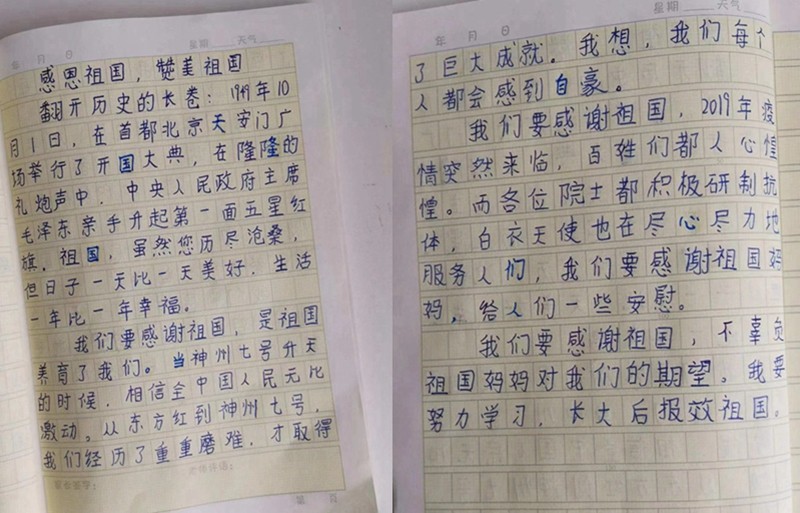 年 月 日 星期 天气
感恩祖国，赞美祖国
翻开历史的长卷：1949年10
月1日，在首都北京天安门广
场举行了开国大典，在隆隆的
礼炮声中，中央人民政府主席
毛泽东亲手升起第一面五星红
旗。祖国，虽然您历尽沧桑，
但日子一天比一天美好，生活
一年比一年幸福。
我们要感谢祖国，是祖国
养育了我们。当神州七号升天
的时候，相信全中国人民无比
激动。从东方红到神州七号，
我们经历了重重磨难，才取得
家长签字：
第 页
年 月 日 星期 天气
了巨大成就。我想，我们每个
人都会感到自豪。
我们要感谢祖国，2019年疫
情突然来临，百姓们都人心惶
惶。而各位院士都积极研制抗
体，白衣天使也在尽心尽力地
服务人们，我们要感谢祖国妈
妈，给人们一些安慰。
我们要感谢祖国，不辜负
祖国妈妈对我们的期望。我要
努力学习，长大后报效祖国。